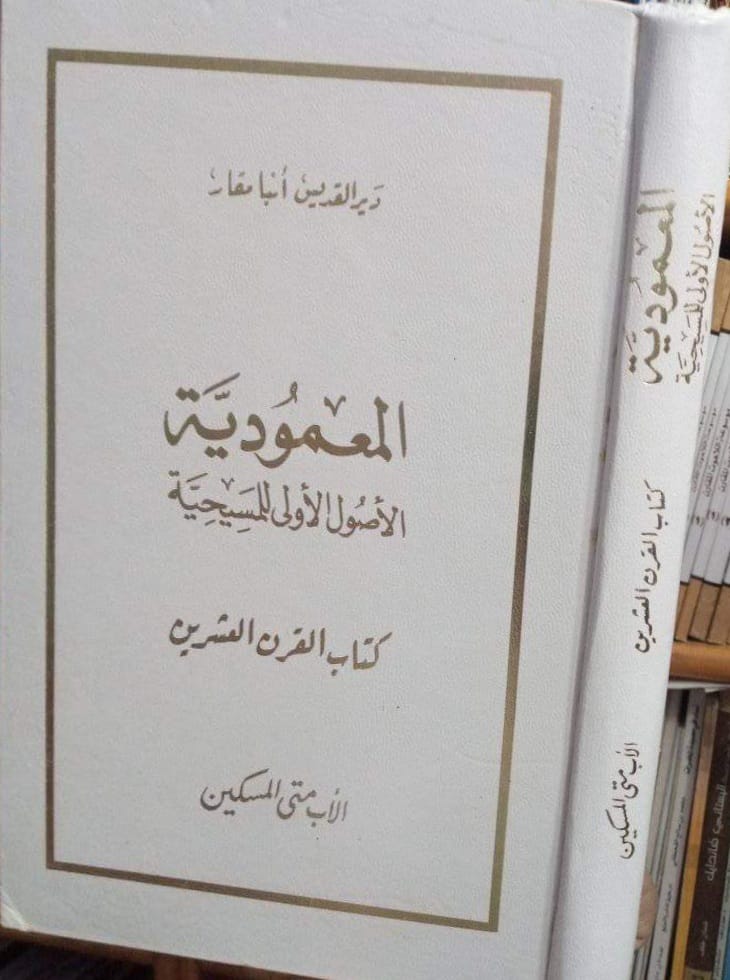 دير القديس أنبا مقار
المعمودية
الأصول الأولى للمسيحية
كتاب القرن العشرين
الأب متى المسكين
المعمودية
الأصول الأولى للمسيحية
كتاب القرن العشرين
الأب متى المسكين